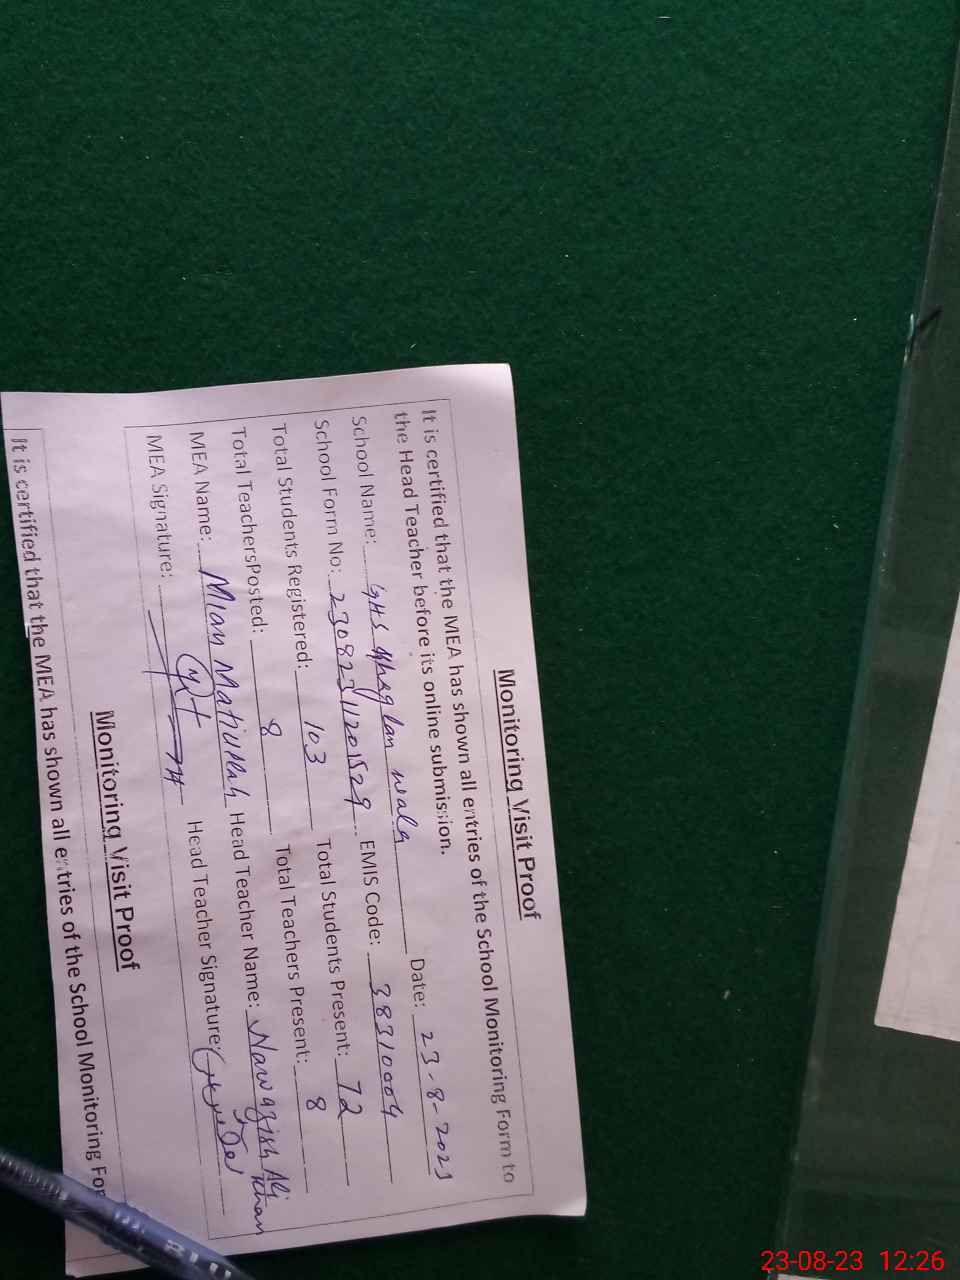 Monitoring Visit Proof
It is certified that the MEA has shown all entries of the School Monitoring Form to
the Head Teacher before its online submission.
School Name: GHS wala Date: 23-8-2023
School Form No: 23082311201529 EMIS Code: 38310004
Total Students Registered: 103 Total Students Present: 72
Total TeachersPosted: 8 Total Teachers Present: 8
MEA Name: Mian Matiullah Head Teacher Name: Nawazish Ali Khan
MEA Signature: Head Teacher Signature:
Monitoring Visit Proof
It is certified that the MEA has shown all entries of the School Monitoring For
23-08-23 12:26